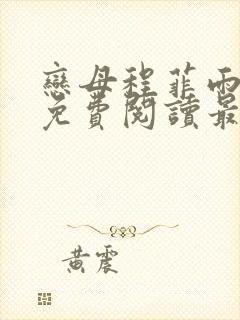 戀母程菲雨
免費閱讀最
黃震